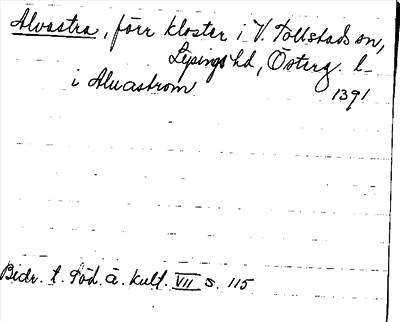 Alvastra, förr kloster i V. Tollstads sn,
Lysings hd, Österg. l-
i Alvastrom 1391
Bidr. t. Söd. ä. kult. VII s. 115